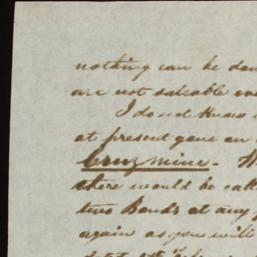 nothing can be don
are not saleable eve
I do not know
at present gone on
Cruz mine.
there would be call
two Bonds at any
again as you will